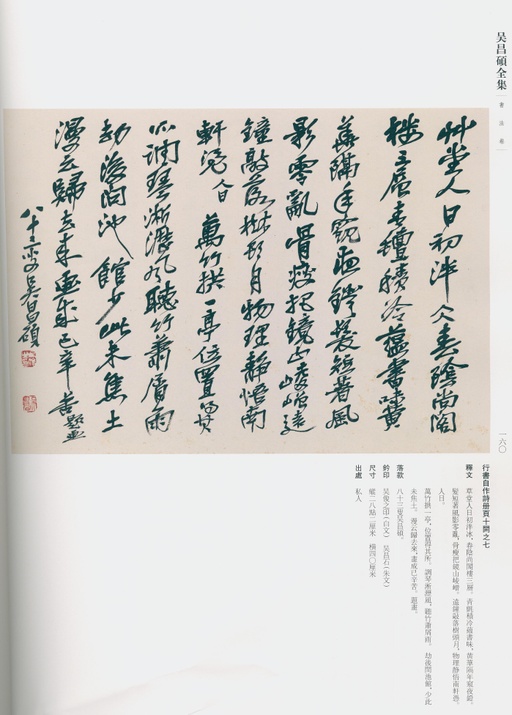 吴昌碩全集
書法卷
艸堂人日初泮仌春陰尚閣
樓三層青氊積冷蘊書味黃
華隔年窺夜鐙髮短著風
影零亂骨瘦把鏡山崚嶒遠
鐘敲落樹頭月物理靜悟南
軒憑 人日 萬竹拱一亭位置得其
所調琴淅瀝風聽竹蕭屑雨
劫後問池館少此未焦土
漫云歸去來画成已辛苦 題画
八十三叟吳昌碩
一六〇
行書自作詩册頁十開之七
釋文 草堂人日初泮冰,春陰尚閣樓三層。青氈積冷蘊書味,黃華隔年窺夜鐙。
髮短著風影零亂,骨瘦把鏡山崚嶒。遠鐘敲落樹頭月,物理靜悟南軒憑。
人日。
萬竹拱一亭,位置得其所。調琴淅瀝風,聽竹蕭屑雨。劫後問池館,少此
未焦土。漫云歸去來,畫成已辛苦。題畫。
落款 八十三叟吴昌碩。
鈐印 吴俊之印(白文) 吴昌石(朱文)
尺寸 縱二八點二厘米 橫四〇厘米
出處 私人